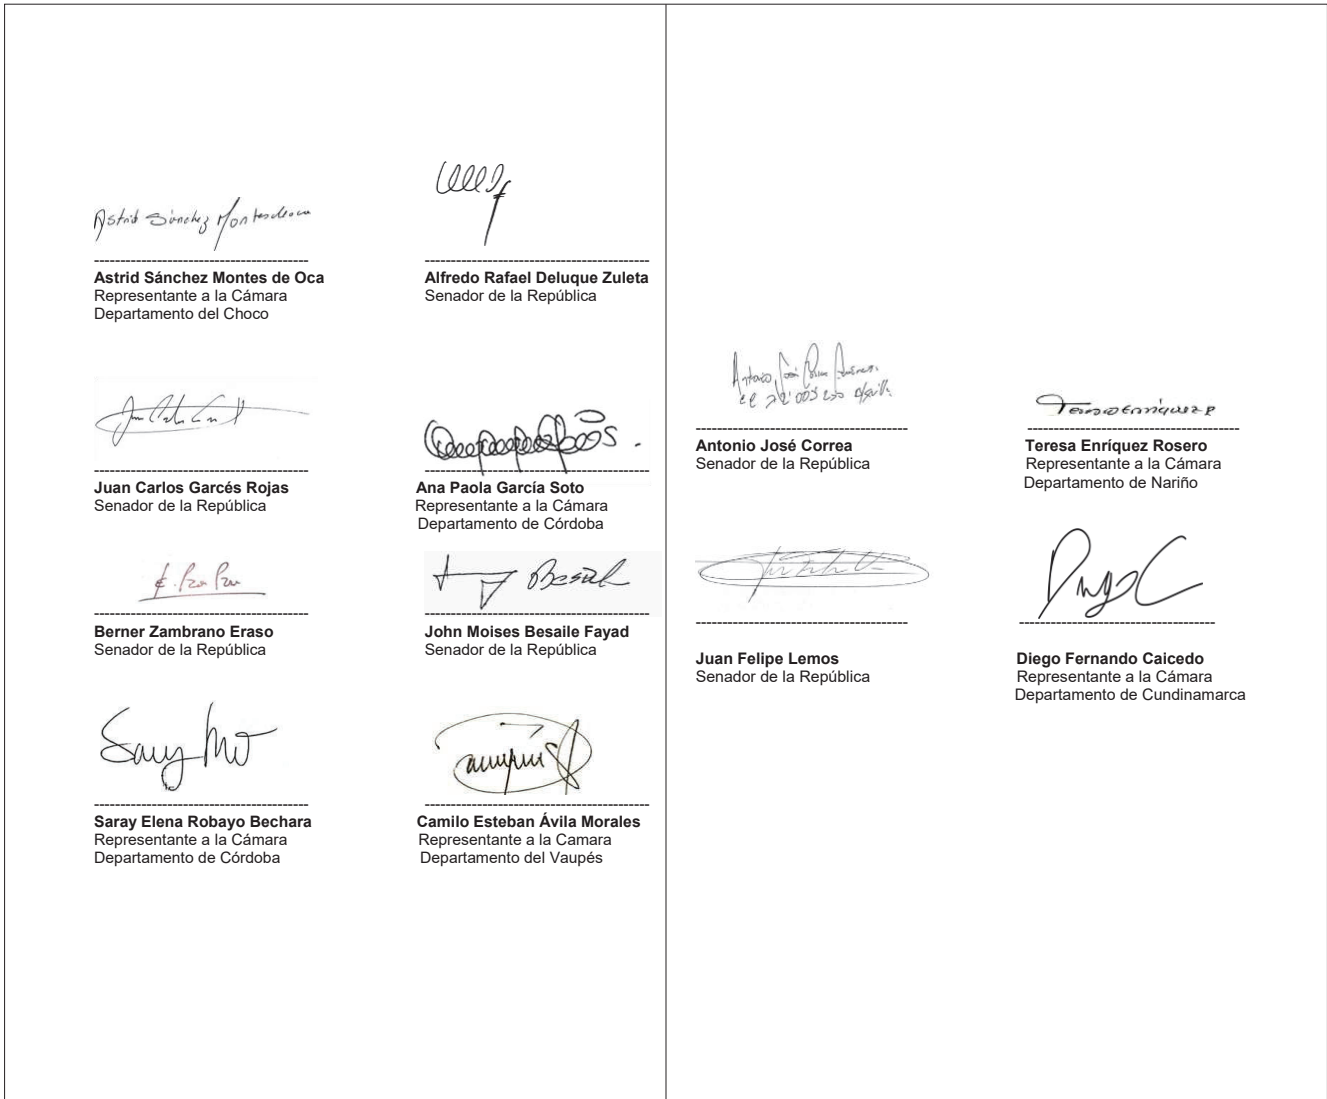 Astrid Sánchez Montes de Oca
Astrid Sánchez Montes de Oca
Representante a la Cámara
Departamento del Choco
Alfredo Rafael Deluque Zuleta
Senador de la República
Juan Carlos Garcés Rojas
Senador de la República
Ana Paola García Soto
Representante a la Cámara
Departamento de Córdoba
Besaile
Berner Zambrano Eraso
Senador de la República
John Moises Besaile Fayad
Senador de la República
Saray Elena Robayo Bechara
Representante a la Cámara
Departamento de Córdoba
Camilo Esteban Ávila Morales
Representante a la Camara
Departamento del Vaupés
Antonio José
Antonio José Correa
Senador de la República
Teresa Enríquez R
Teresa Enríquez Rosero
Representante a la Cámara
Departamento de Nariño
Juan Felipe Lemos
Senador de la República
Diego C
Diego Fernando Caicedo
Representante a la Cámara
Departamento de Cundinamarca